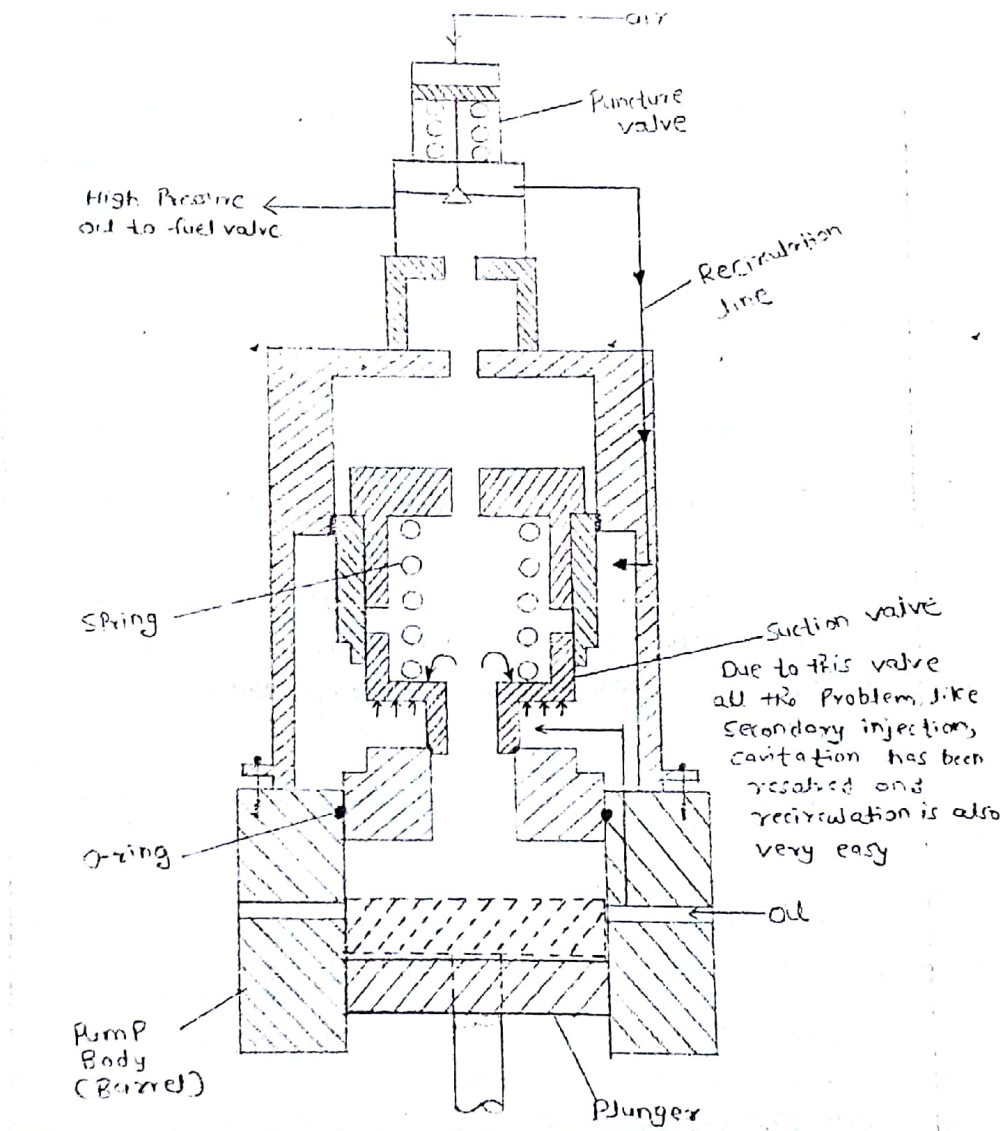 air
Puncture
valve
High Pressure
oil to fuel valve
Recirculation
line
Spring
Suction valve
Due to this valve
all the Problem, like
Secondary injection,
cavitation has been
resolved and
recirculation is also
very easy
O-ring
oil
Pump
Body
(Barrel)
Plunger